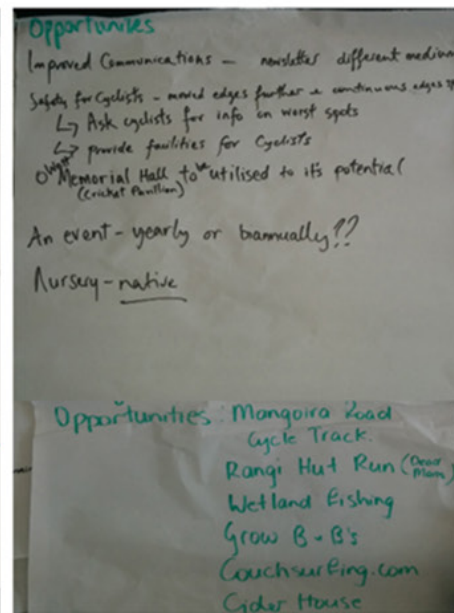 Opportunities
Improved Communications – newsletter different medium
Safety for Cyclists – moved edges further & continuous edges
↳ Ask cyclists for info on worst spots
↳ provide facilities for Cyclists
Memorial Hall to be utilised to it's potential
(Cricket Pavilion)
An event – yearly or biannually??
Nursery – native
Opportunities: Mangoira Road
Cycle Track.
Rangi Hut Run
Wetland Fishing
Grow B+B's
Couchsurfing.com
Cider House